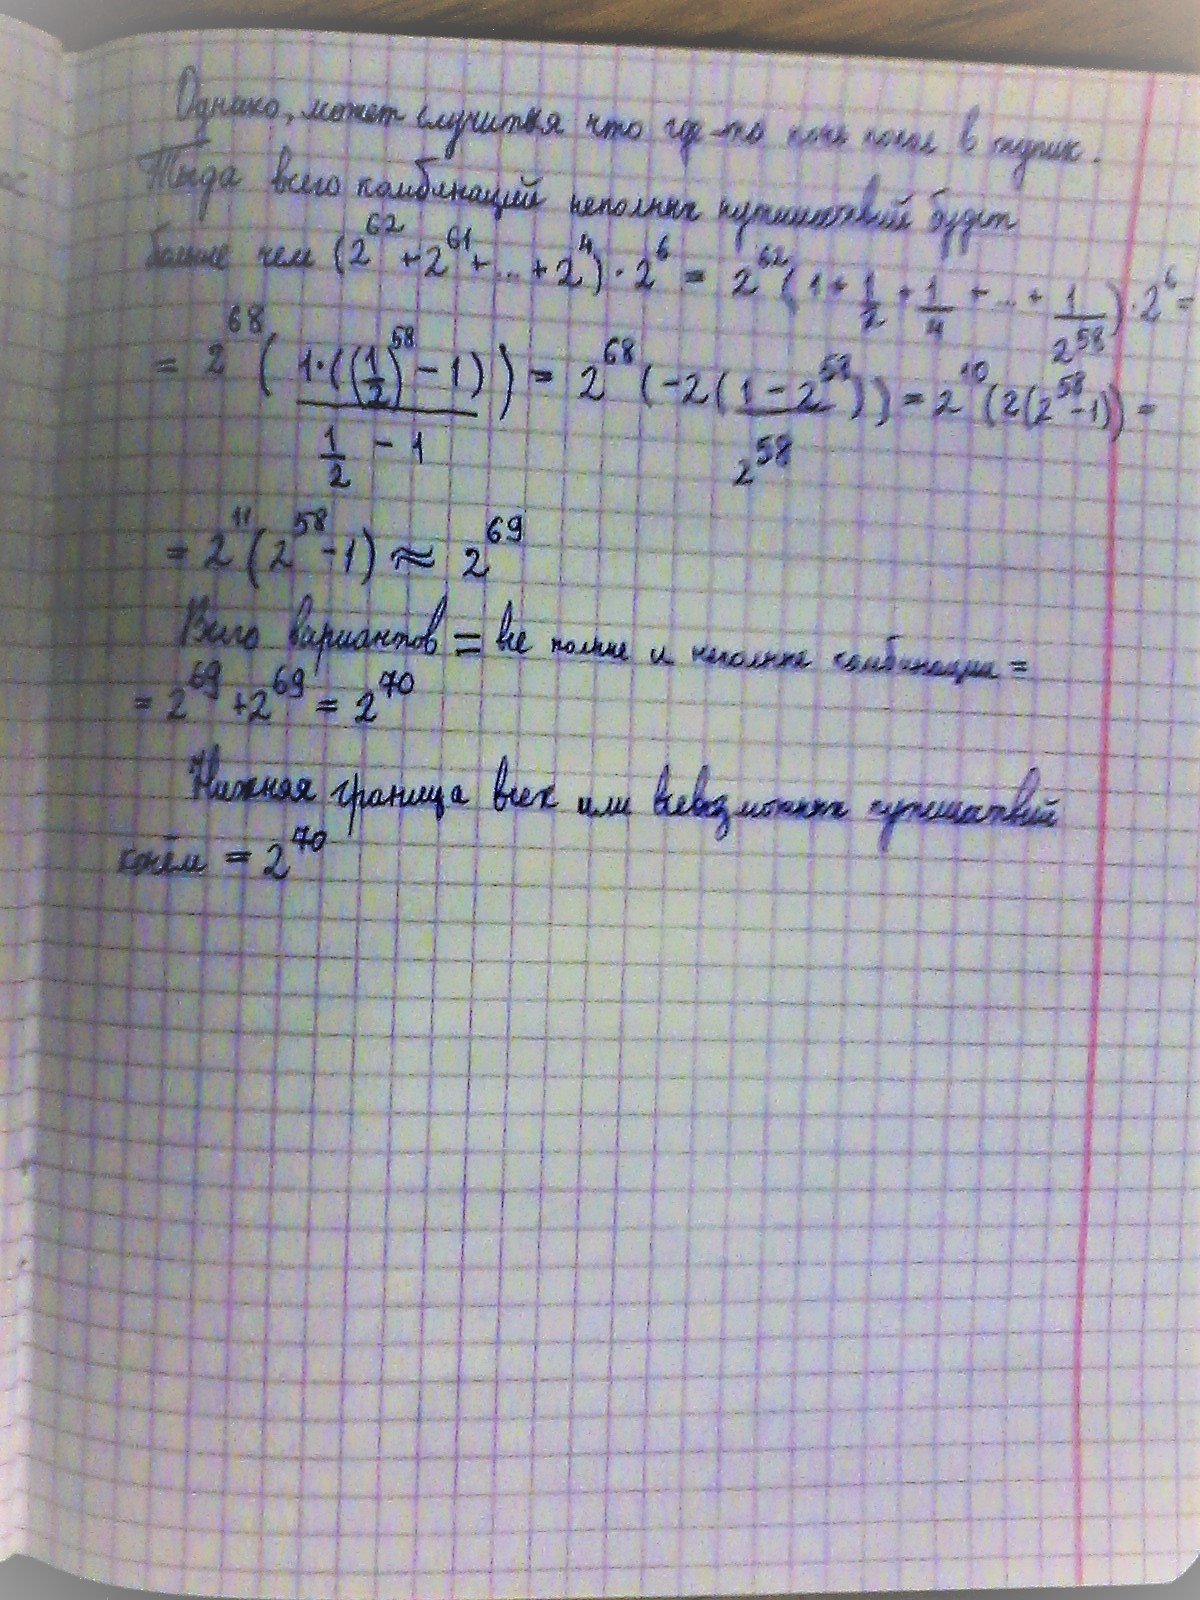 Однако, может случится что где-то конь попал в тупик.
Тогда всего комбинаций неполных путешествий будет
больше чем (2^62 + 2^61 + ... + 2^4) · 2^6 = 2^62 (1 + 1/2 + 1/4 + ... + 1/2^58) · 2^6 =
= 2^68 ( 1·((1/2)^58 - 1) / (1/2 - 1) ) = 2^68 (-2( (1 - 2^58) / 2^58 )) = 2^10 (2(2^58 - 1)) =
= 2^11 (2^58 - 1) ≈ 2^69
Всего вариантов = все полные и неполные комбинации =
= 2^69 + 2^69 = 2^70
Нижняя граница всех или всевозможных путешествий
конём = 2^70